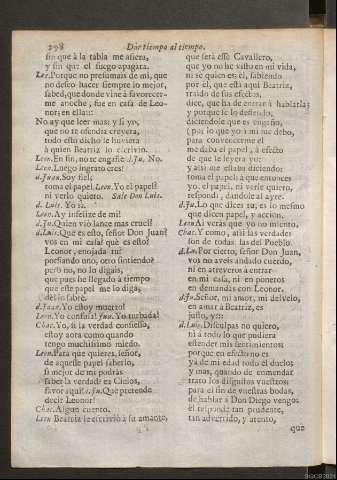 298 Dár tiempo al tiempo.
sin que à la tabla me asiera,
y sin que el fuego apagàra.
Leo. Porque no presumais de mi, que
no deseo hacer siempre lo mejor,
sabed, que donde vine à favorecer-
me anoche, fue en casa de Leo-
nor; en ella:
No ay que leer mas; y si yo,
que no te ofendia creyera,
todo esto dicho le huviera
à quien Beatriz lo escrivió.
Leon. En fin, no te engañè? d. Ju. No.
Leon. Luego ingrato eres?
d. Juan. Soy fiel;
toma el papel. Leon. Yo el papel?
ni verlo quiero. Sale Don Luis.
d. Luis. Yo sì.
Leon. Ay infelize de mi!
d. Ju. Quien viò lance mas cruel!
d. Luis. Què es esto, señor Don Juan?
vos en mi casa? què es esto?
Leonor, enojada tu?
porfiando uno, otro sintiendo?
pero no, no lo digais,
que pues he llegado à tiempo
que este papel me lo diga,
dèl lo sabrè.
d. Juan. Yo estoy muerto!
Leon. Yo confusa! Jua. Yo turbada!
Chac. Yo, si la verdad confiesso,
estoy aora como quando
tengo muchissimo miedo.
Leon. Para que quieres, señor,
de aquesse papel saberlo,
si mejor de mi podràs
saber la verdad? ea Cielos,
favor aqui! d. Ju. Què pretende
decir Leonor?
Chac. Algun cuento.
Leon. Beatriz le escriviò à su amante,
que serà esse Cavallero,
que yo no he visto en mi vida,
ni sè quien es: èl, sabiendo
por el, que està aqui Beatriz,
traìdo de sus afectos,
dice, que ha de entrar à hablarla;
y porque le lo defiendo,
diciendole que es engaño,
( por lo que yo à mi me debo,
para convencerme el
me daba el papel, à efecto
de que le leyera yo:
y assi me estaba diciendo:
toma el papel; à que entonces
yo, el papel, ni verle quiero,
respondì, dandole al ayre.
d. Ju. Lo que dices tu, es lo mesmo
que dicen papel, y accion.
Leon. Ai veràs que yo no miento.
Chac. Y como, assi las verdades
son de todas las del Pueblo.
d. Lu. Por cierto, señor Don Juan,
vos no aveis andado cuerdo,
ni en atreveros à entrar
en mi casa, ni en poneros
en demandas con Leonor.
d. Ju. Señor, mi amor, mi desvelo,
en amar à Beatriz, es
justo, y::-
d. Luis. Disculpas no quiero,
ni à todo lo que pudiera
estender mis sentimientos;
porque en efecto no es
ya de mi edad todo el duelo;
y mas, quando de enmendar
trato los disgustos vuestros;
para el fin de vuestras bodas,
de hablar à Don Diego vengo;
èl responde tan prudente,
tan advertido, y atento,
que